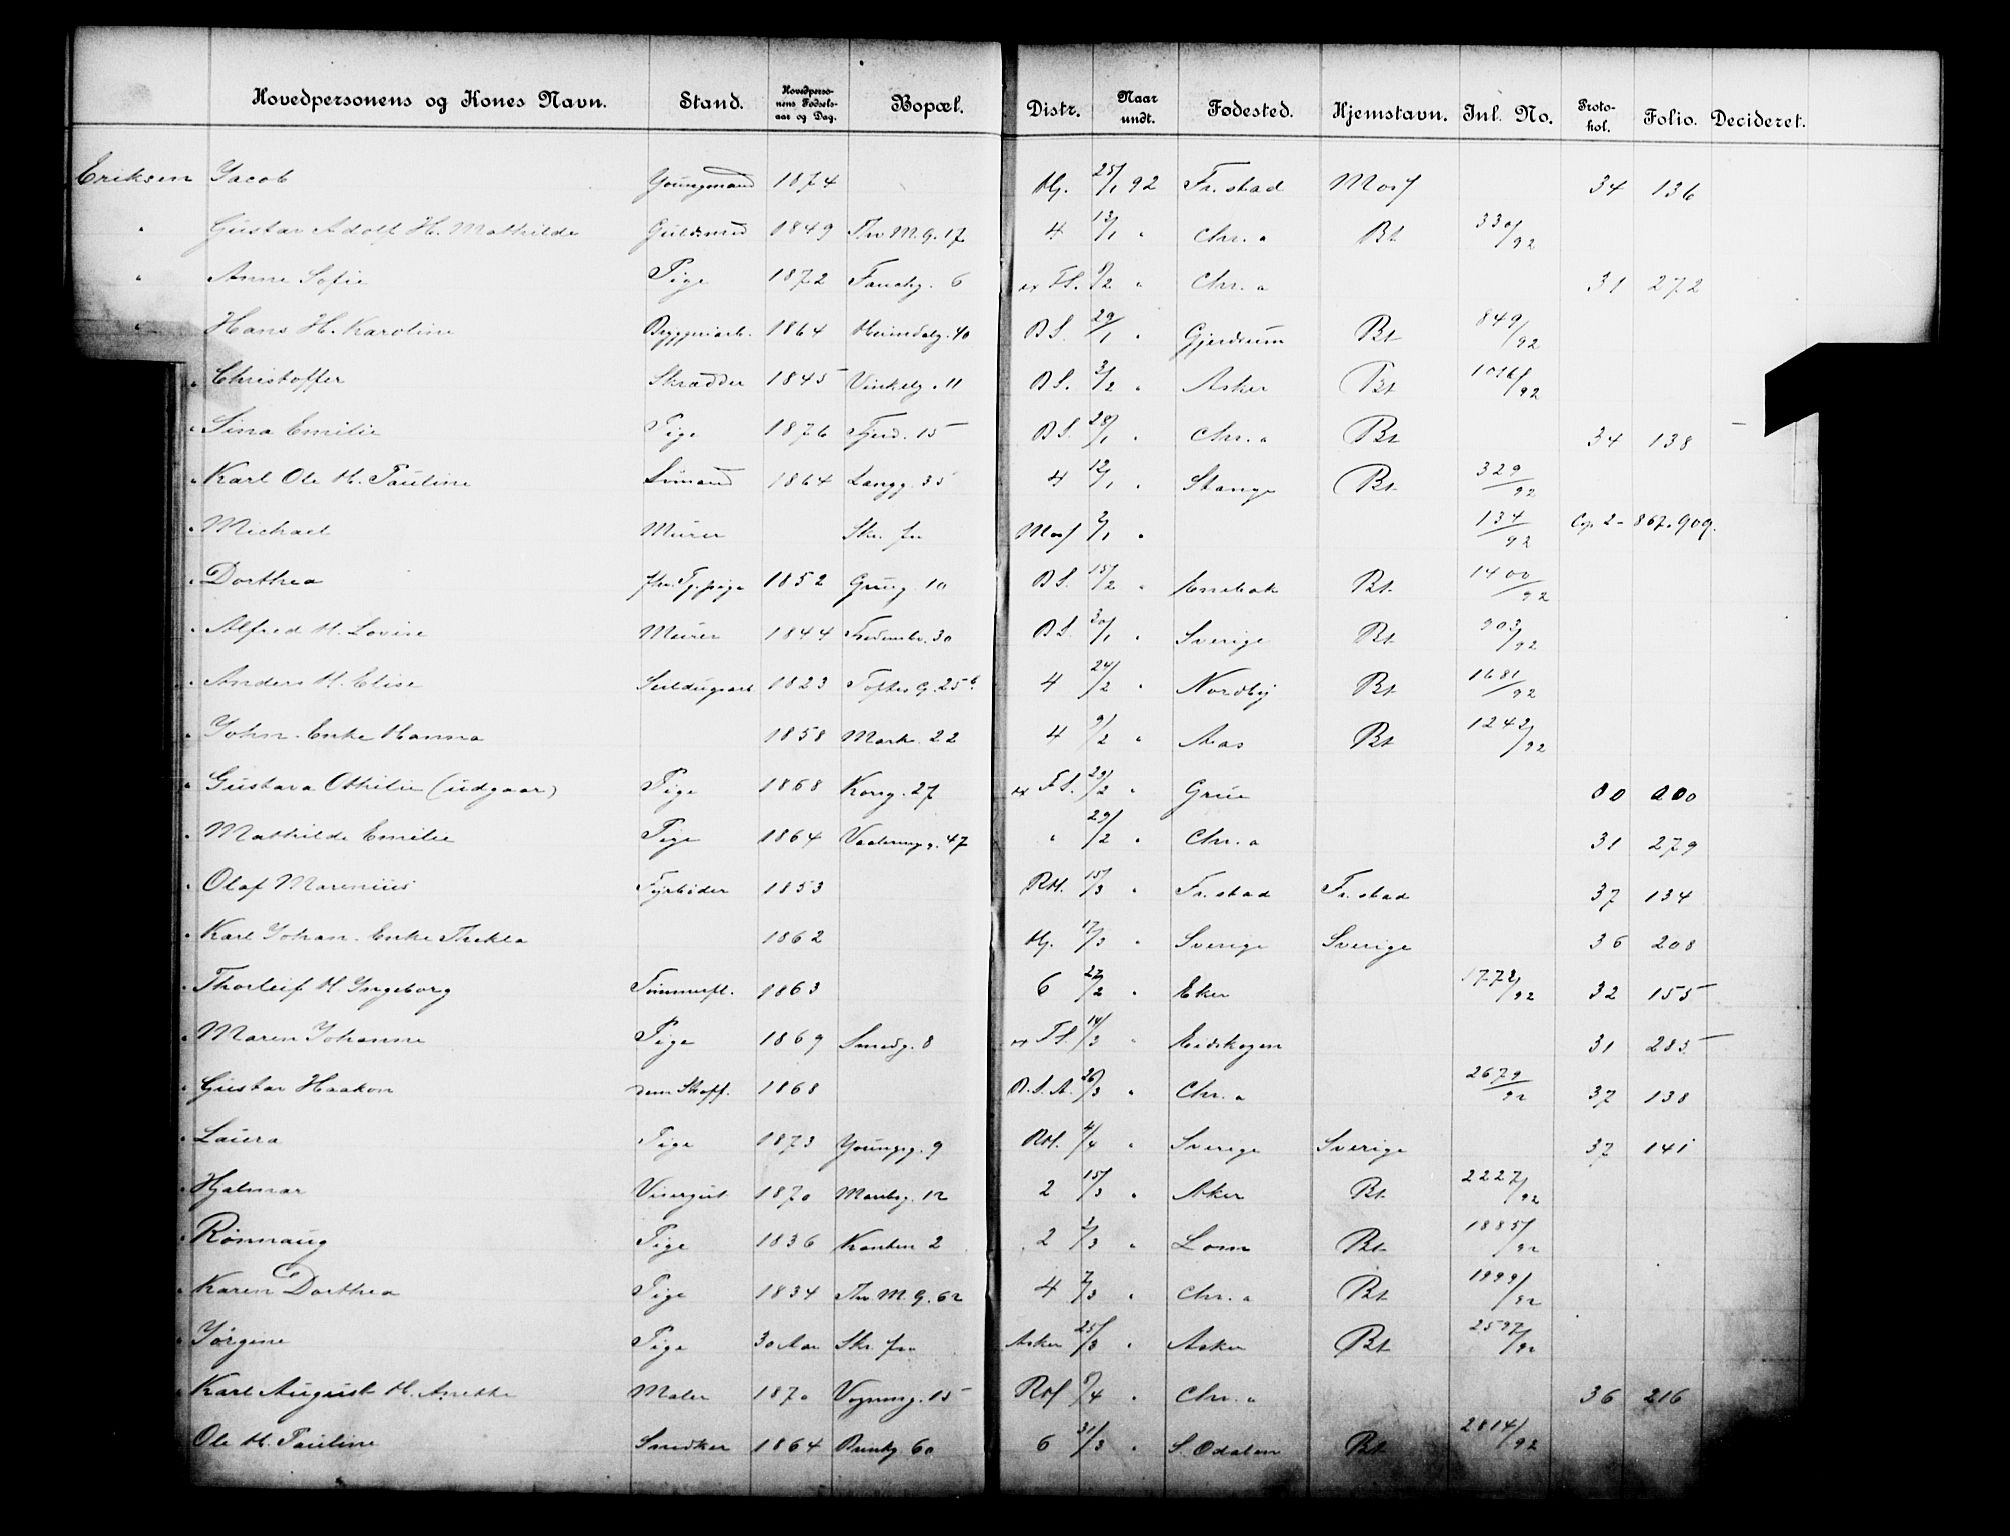 Hovedpersonens og Kones Navn. Stand. Hovedpersonens Fødselsaar og Dag. Bopæl. Distr. Naar undt. Fødested. Hjemstavn. Inl. No. Protokol. Folio. Decideret.
Eriksen Jacob Youngmand 1874 Hj. 25/1 92 Fr.stad Moss 34 136
" Gustav Adolf H. Mathilde Guldsmed 1849 Thv M. G. 17 4 13/1 " Chr.a Bt 330/92
" Anne Sofie Pige 1872 6 FS. /2 " Chr.a 31 272
" Hans H. Karoline Bryggeriarb. 1864 40 BS. 29/1 " Gjerdrum Bt 849/92
" Christoffer Skrædder 1845 Vinkelg. 11 BS. 3/2 " Asker Bt 1016/92
" Sina Emilie Pige 1876 Fjerd. 15 BS. 28/1 " Chr.a Bt 34 138
" Karl Ole H. Pauline Sømand 1864 Langg. 35 4 12/1 " Stange Bt 329/92
" Michael Murer Skr. fra Moss 2/1 " 134/92 Cop. 2 - 867. 909.
" Dorthea 1852 Grüg. 10 BS. 15/2 " Enebak Bt 1400/92
" Alfred H. Lovise Murer 1844 30 BS. 30/1 " Sverige Bt 903/92
" Anders H. Elise Seildugsarb 1823 Toftes G. 25 b. 4 24/2 " Nordby Bt 1681/92
" John. Enke Hanna 1858 Mark. 22 4 9/2 " Aas Bt 1242/92
" Gustava Othilie (udgaar) Pige 1868 Kong. 27 FS. 23/2 " Grue 00 200
" Mathilde Emilie Pige 1864 Vaalerengg. 47 " 29/2 " Chr.a 31 279
" Olaf Marenius Fyrbøder 1853 RH. 15/3 " Fr.stad Fr.stad 37 134
" Karl Johan. Enke Thekla 1862 Hj. 17/3 " Sverige Sverige 36 208
" Thorleif H Ingeborg Tømmerfl. 1863 6 27/2 " Eker 1772/92 32 155
" Maren Johanne Pige 1869 Smedg. 8 FS. 14/3 " Eidskogen 31 285
" Gustav Haakon 1868 B.S.A. 26/3 " Chr.a 2679/92 37 138
" Laura Pige 1873 Youngsg. 9 RH. 4/4 " Sverige Sverige 37 141
" Hjalmar Visergut 1870 Maribg. 12 2 15/3 " Aker Bt 2227/92
" Rønnaug Pige 1836 2 2 2/3 " Lom Bt 1885/92
" Karen Dorthea Pige 1834 Thv. M. G. 62 4 2/3 " Chr.a Bt 1999/92
" Jørgine Pige 30 Aar Skr. fra Asker 25/3 " Asker Bt 2597/92
" Karl August H. Anethe Maler 1870 15 RH /4 " Chr.a 36 216
Ole H. Pauline Snedker 1864 60 6 31/3 " S. Odalen Bt 2814/92